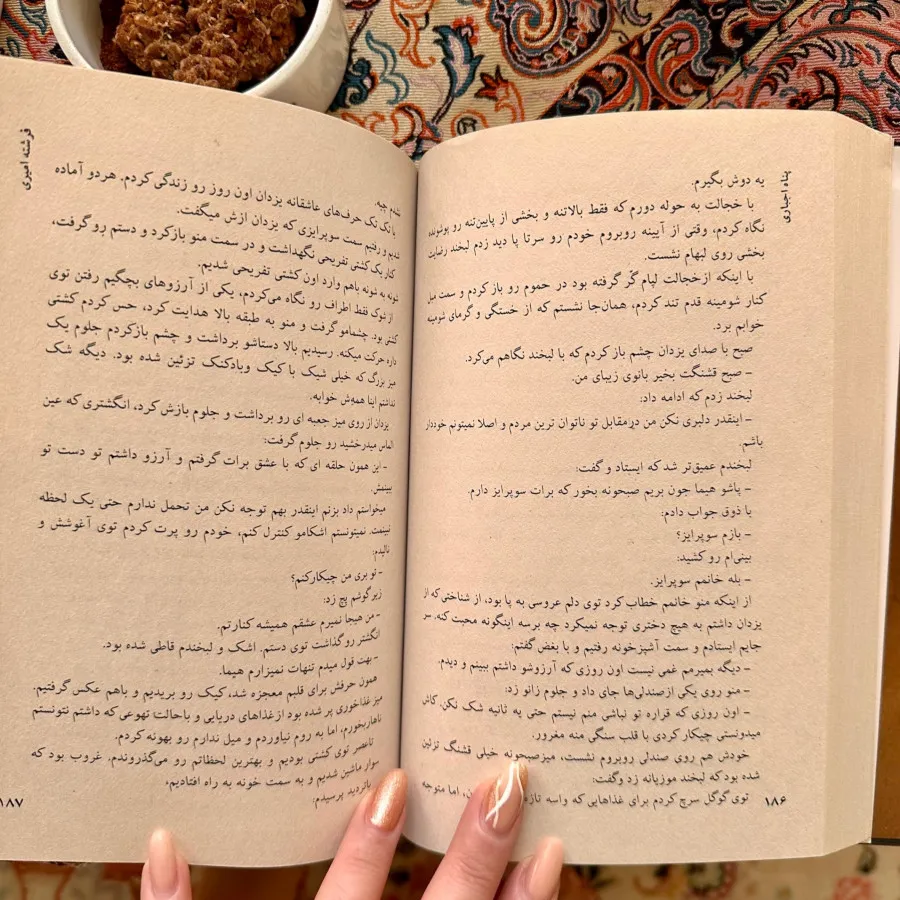 پناه اجباری
یه دوش بگیرم.
با خجالت به حوله دورم که فقط بالاتنه و بخشی از پایین‌تنه رو پوشونده
نگاه کردم، وقتی از آیینه روبروم خودم رو سرتا پا دید زدم لبخند رضایت
بخشی روی لبهام نشست.
با اینکه ازخجالت لپام گُر گرفته بود در حموم رو باز کردم و سمت مبل
کنار شومینه قدم تند کردم، همان‌جا نشستم که از خستگی و گرمای شومینه
خوابم برد.
صبح با صدای یزدان چشم باز کردم که با لبخند نگاهم می‌کرد.
- صبح قشنگت بخیر بانوی زیبای من.
لبخند زدم که ادامه داد:
- اینقدر دلبری نکن من درمقابل تو ناتوان ترین مردم و اصلا نمیتونم خوددار
باشم.
لبخندم عمیق‌تر شد که ایستاد و گفت:
- پاشو هیما جون بریم صبحونه بخور که برات سوپرایز دارم.
با ذوق جواب دادم:
- بازم سوپرایز؟
بینی‌ام رو کشید:
- بله خانمم سوپرایز.
از اینکه منو خانمم خطاب کرد توی دلم عروسی به پا بود، از شناختی که از
یزدان داشتم به هیچ دختری توجه نمیکرد چه برسه اینگونه محبت کنه. سر
جایم ایستادم و سمت آشپزخونه رفتیم و با بغض گفتم:
- دیگه بمیرمم غمی نیست اون روزی که آرزوشو داشتم ببینم و دیدم.
- منو روی یکی ازصندلی‌ها جای داد و جلوم زانو زد:
- اون روزی که قراره تو نباشی منم نیستم حتی یه ثانیه شک نکن. کاش
میدونستی چیکار کردی با قلب سنگی منه مغرور.
خودش هم روی صندلی روبروم نشست، میزصبحونه خیلی قشنگ تزئین
شده بود که لبخند موزیانه زد وگفت:
توی گوگل سرچ کردم برای غذاهایی که واسه تازه اما متوجه
۱۸۶
فرشته امیری
نشدم چیه.
با تک تک حرف‌های عاشقانه یزدان اون روز رو زندگی کردم. هردو آماده
شدیم و رفتیم سمت سوپرایزی که یزدان ازش میگفت.
کنار یک کشتی تفریحی نگهداشت و در سمت منو بازکرد و دستم رو گرفت،
شونه به شونه باهم وارد اون کشتی تفریحی شدیم.
از شوک فقط اطراف رو نگاه می‌کردم، یکی از آرزوهای بچگیم رفتن توی
کشتی بود. چشمامو گرفت و منو به طبقه بالا هدایت کرد، حس کردم کشتی
داره حرکت میکنه. رسیدیم بالا دستاشو برداشت و چشم بازکردم جلوم یک
میز بزرگ که خیلی شیک با کیک وبادکنک تزئین شده بود. دیگه شک
نداشتم اینا همه‌ش خوابه.
یزدان از روی میز جعبه ای رو برداشت و جلوم بازش کرد، انگشتری که عین
الماس میدرخشید رو جلوم گرفت:
- این همون حلقه ای که با عشق برات گرفتم و آرزو داشتم تو دست تو
ببینمش.
میخواستم داد بزنم اینقدر بهم توجه نکن من تحمل ندارم حتی یک لحظه
نبینمت. نمیتونستم اشکامو کنترل کنم، خودم رو پرت کردم توی آغوشش و
نالیدم:
- تو بری من چیکارکنم؟
زیرگوشم پچ زد:
- من هیجا نمیرم عشقم همیشه کنارتم.
انگشتر رو گذاشت توی دستم. اشک و لبخندم قاطی شده بود.
- بهت قول میدم تنهات نمیزارم هیما.
همون حرفش برای قلبم معجزه شد، کیک رو بریدیم و باهم عکس گرفتیم.
میز غذاخوری پر شده بود از غذاهای دریایی و باحالت تهوعی که داشتم نتونستم
ناهاربخورم، اما به روم نیاوردم و میل ندارم رو بهونه کردم.
تاعصر توی کشتی بودیم و بهترین لحظاتم رو می‌گذروندم. غروب بود که
سوار ماشین شدیم و به سمت خونه به راه افتادیم.
باتردید پرسیدم:
۱۸۷